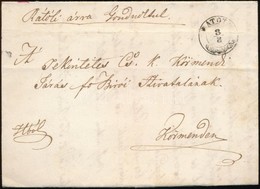 Rátóti árva Gondnoktul.
RÁTÓT
8
A Tekintetes Cs. k. Körmendi
Járás fő Birói Hivatalának
Körmenden